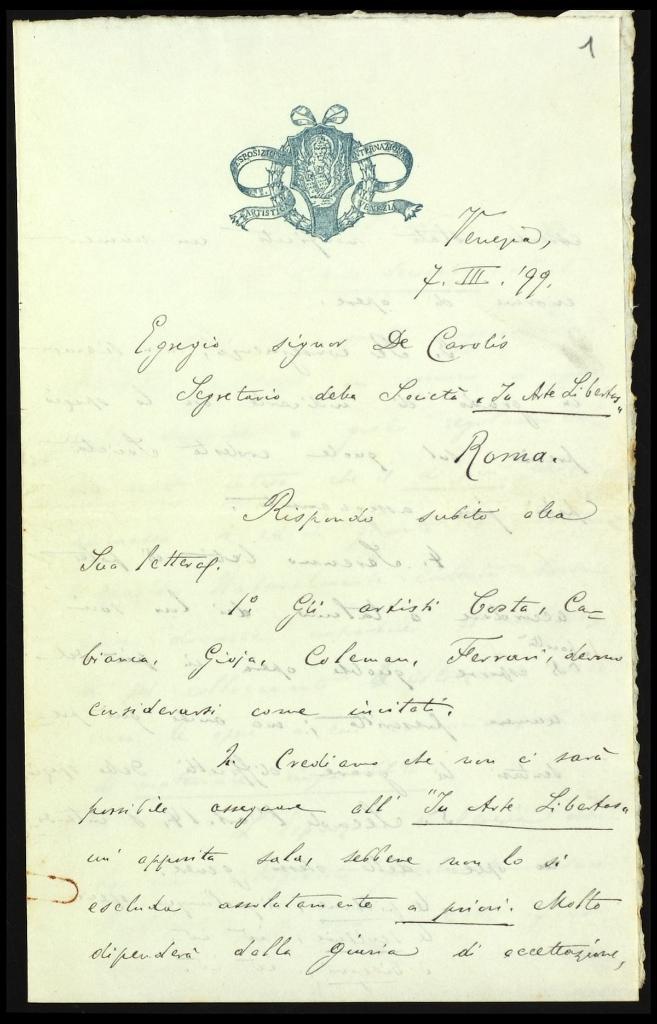 1
ESPOSIZIONE INTERNAZIONALE
ARTISTI VENEZIA
Venezia,
7. III. '99.
Egregio signor De Carolis
Segretario della Società "In Arte Libertas"
Roma.
Rispondo subito alla
Sua lettera.
1º Gli artisti Costa, Ca-
bianca, Gioja, Coleman, Ferrari, devono
considerarsi come invitati.
2. Crediamo che non ci sarà
possibile assegnare all' "In Arte Libertas"
un' apposita sala, sebbene non lo si
escluda assolutamente a priori. Molto
dipenderà dalla Giuria di accettazione,